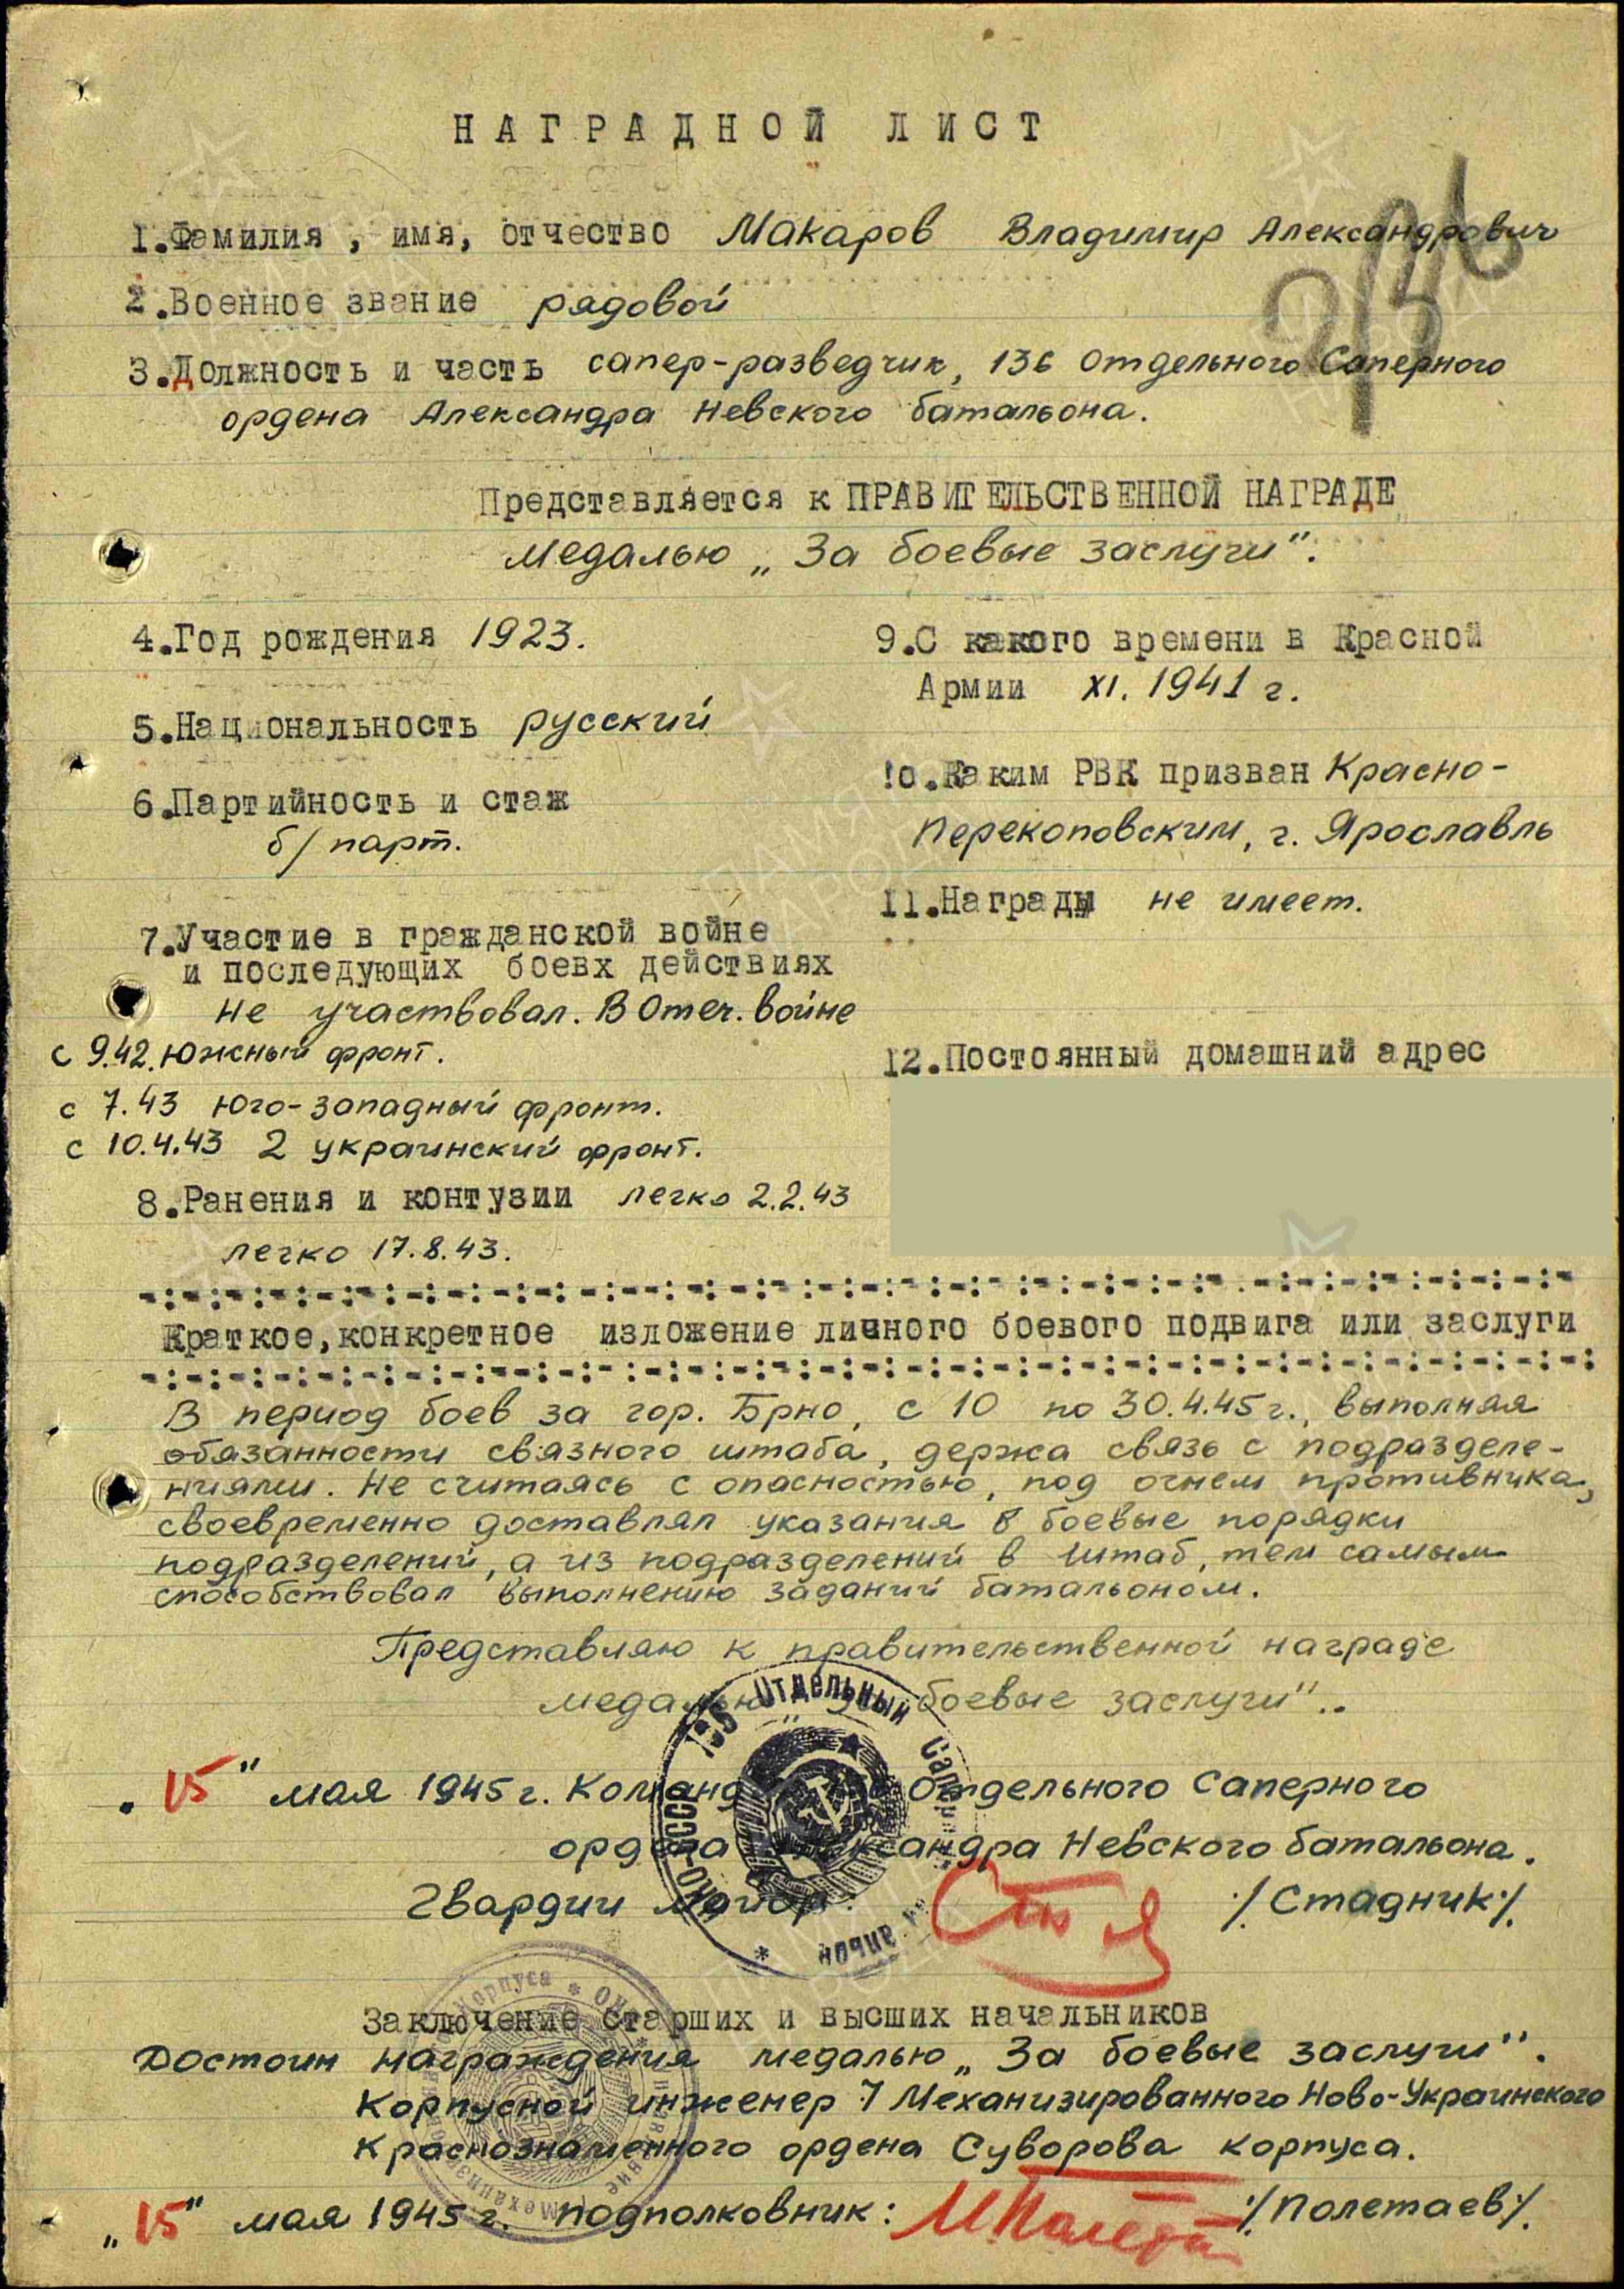 НАГРАДНОЙ ЛИСТ
1.Фамилия, имя, отчество Макаров Владимир Александрович
2.Военное звание рядовой
3.Должность и часть сапер-разведчик, 136 отдельного Саперного
ордена Александра Невского батальона.
Представляется к ПРАВИТЕЛЬСТВЕННОЙ НАГРАДЕ
медалью „За боевые заслуги".
4.Год рождения 1923.
5.Национальность русский
6.Партийность и стаж
б/парт.
7.Участие в гражданской войне
и последующих боевх действиях
не участвовал. В Отеч. войне
с 9.42. Южный фронт.
с 7.43 Юго-западный фронт.
с 10.4.43 2 украинский фронт.
8.Ранения и контузии легко 2.2.43
легко 17.8.43.
9.С какого времени в Красной
Армии XI. 1941 г.
10.Каким РВК призван Красно-
Перекоповским, г. Ярославль
11.Награды не имеет.
12.Постоянный домашний адрес
Краткое, конкретное изложение личного боевого подвига или заслуги
В период боев за гор. Брно, с 10 по 30.4.45г., выполняя
обязанности связного штаба, держа связь с подразделе-
ниями. Не считаясь с опасностью, под огнем противника,
своевременно доставлял указания в боевые порядки
подразделений, а из подразделений в штаб, тем самым
способствовал выполнению заданий батальоном.
Представляю к правительственной награде
медалью боевые заслуги"..
„15" мая 1945г. Команд Отдельного Саперного
ордена Александра Невского батальона.
Гвардии майор: /Стадник/.
136 Отдельный Саперный
Заключение старших и высших начальников
Достоин награждения медалью „За боевые заслуги".
Корпусной инженер 7 Механизированного Ново-Украинского
Краснознаменного ордена Суворова корпуса.
„15" мая 1945г. подполковник: /Полетаев/.